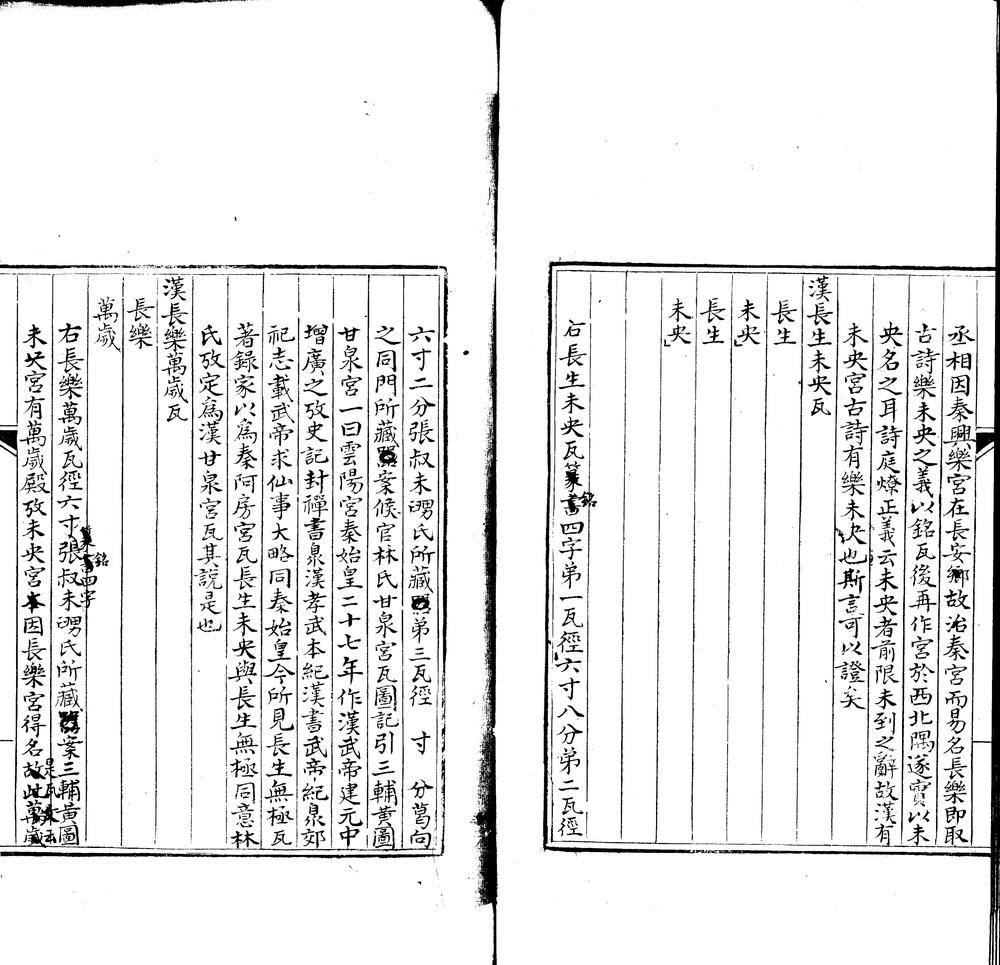 丞相因秦興樂宮在長安鄉故治秦宮而易名長樂即取
古詩樂未央之義以銘瓦後再作宮於西北隅遂實以未
央名之耳詩庭燎正義云未央者前限未到之辭故漢有
未央宮古詩有樂未央也斯言可以證矣
漢長生未央瓦
長生
未央
長生
未央
右長生未央瓦篆書銘四字弟一瓦徑六寸八分弟二瓦徑
六寸二分張叔未甥氏所藏弟三瓦徑　寸　分葛向
之同門所藏案候官林氏甘泉宮瓦圖記引三輔黃圖
甘泉宮一曰雲陽宮秦始皇二十七年作漢武帝建元中
增廣之攷史記封禪書泉漢孝武本紀漢書武帝紀泉郊
祀志載武帝求仙事大略同秦始皇今所見長生無極瓦
著錄家以為秦阿房宮瓦長生未央與長生無極同意林
氏攷定為漢甘泉宮瓦其說是也
漢長樂萬歲瓦
長樂
萬歲
右長樂萬歲瓦徑六寸篆書銘四字張叔未甥氏所藏案三輔黃圖
未央宮有萬歲殿攷未央宮因長樂宮得名故此萬歲